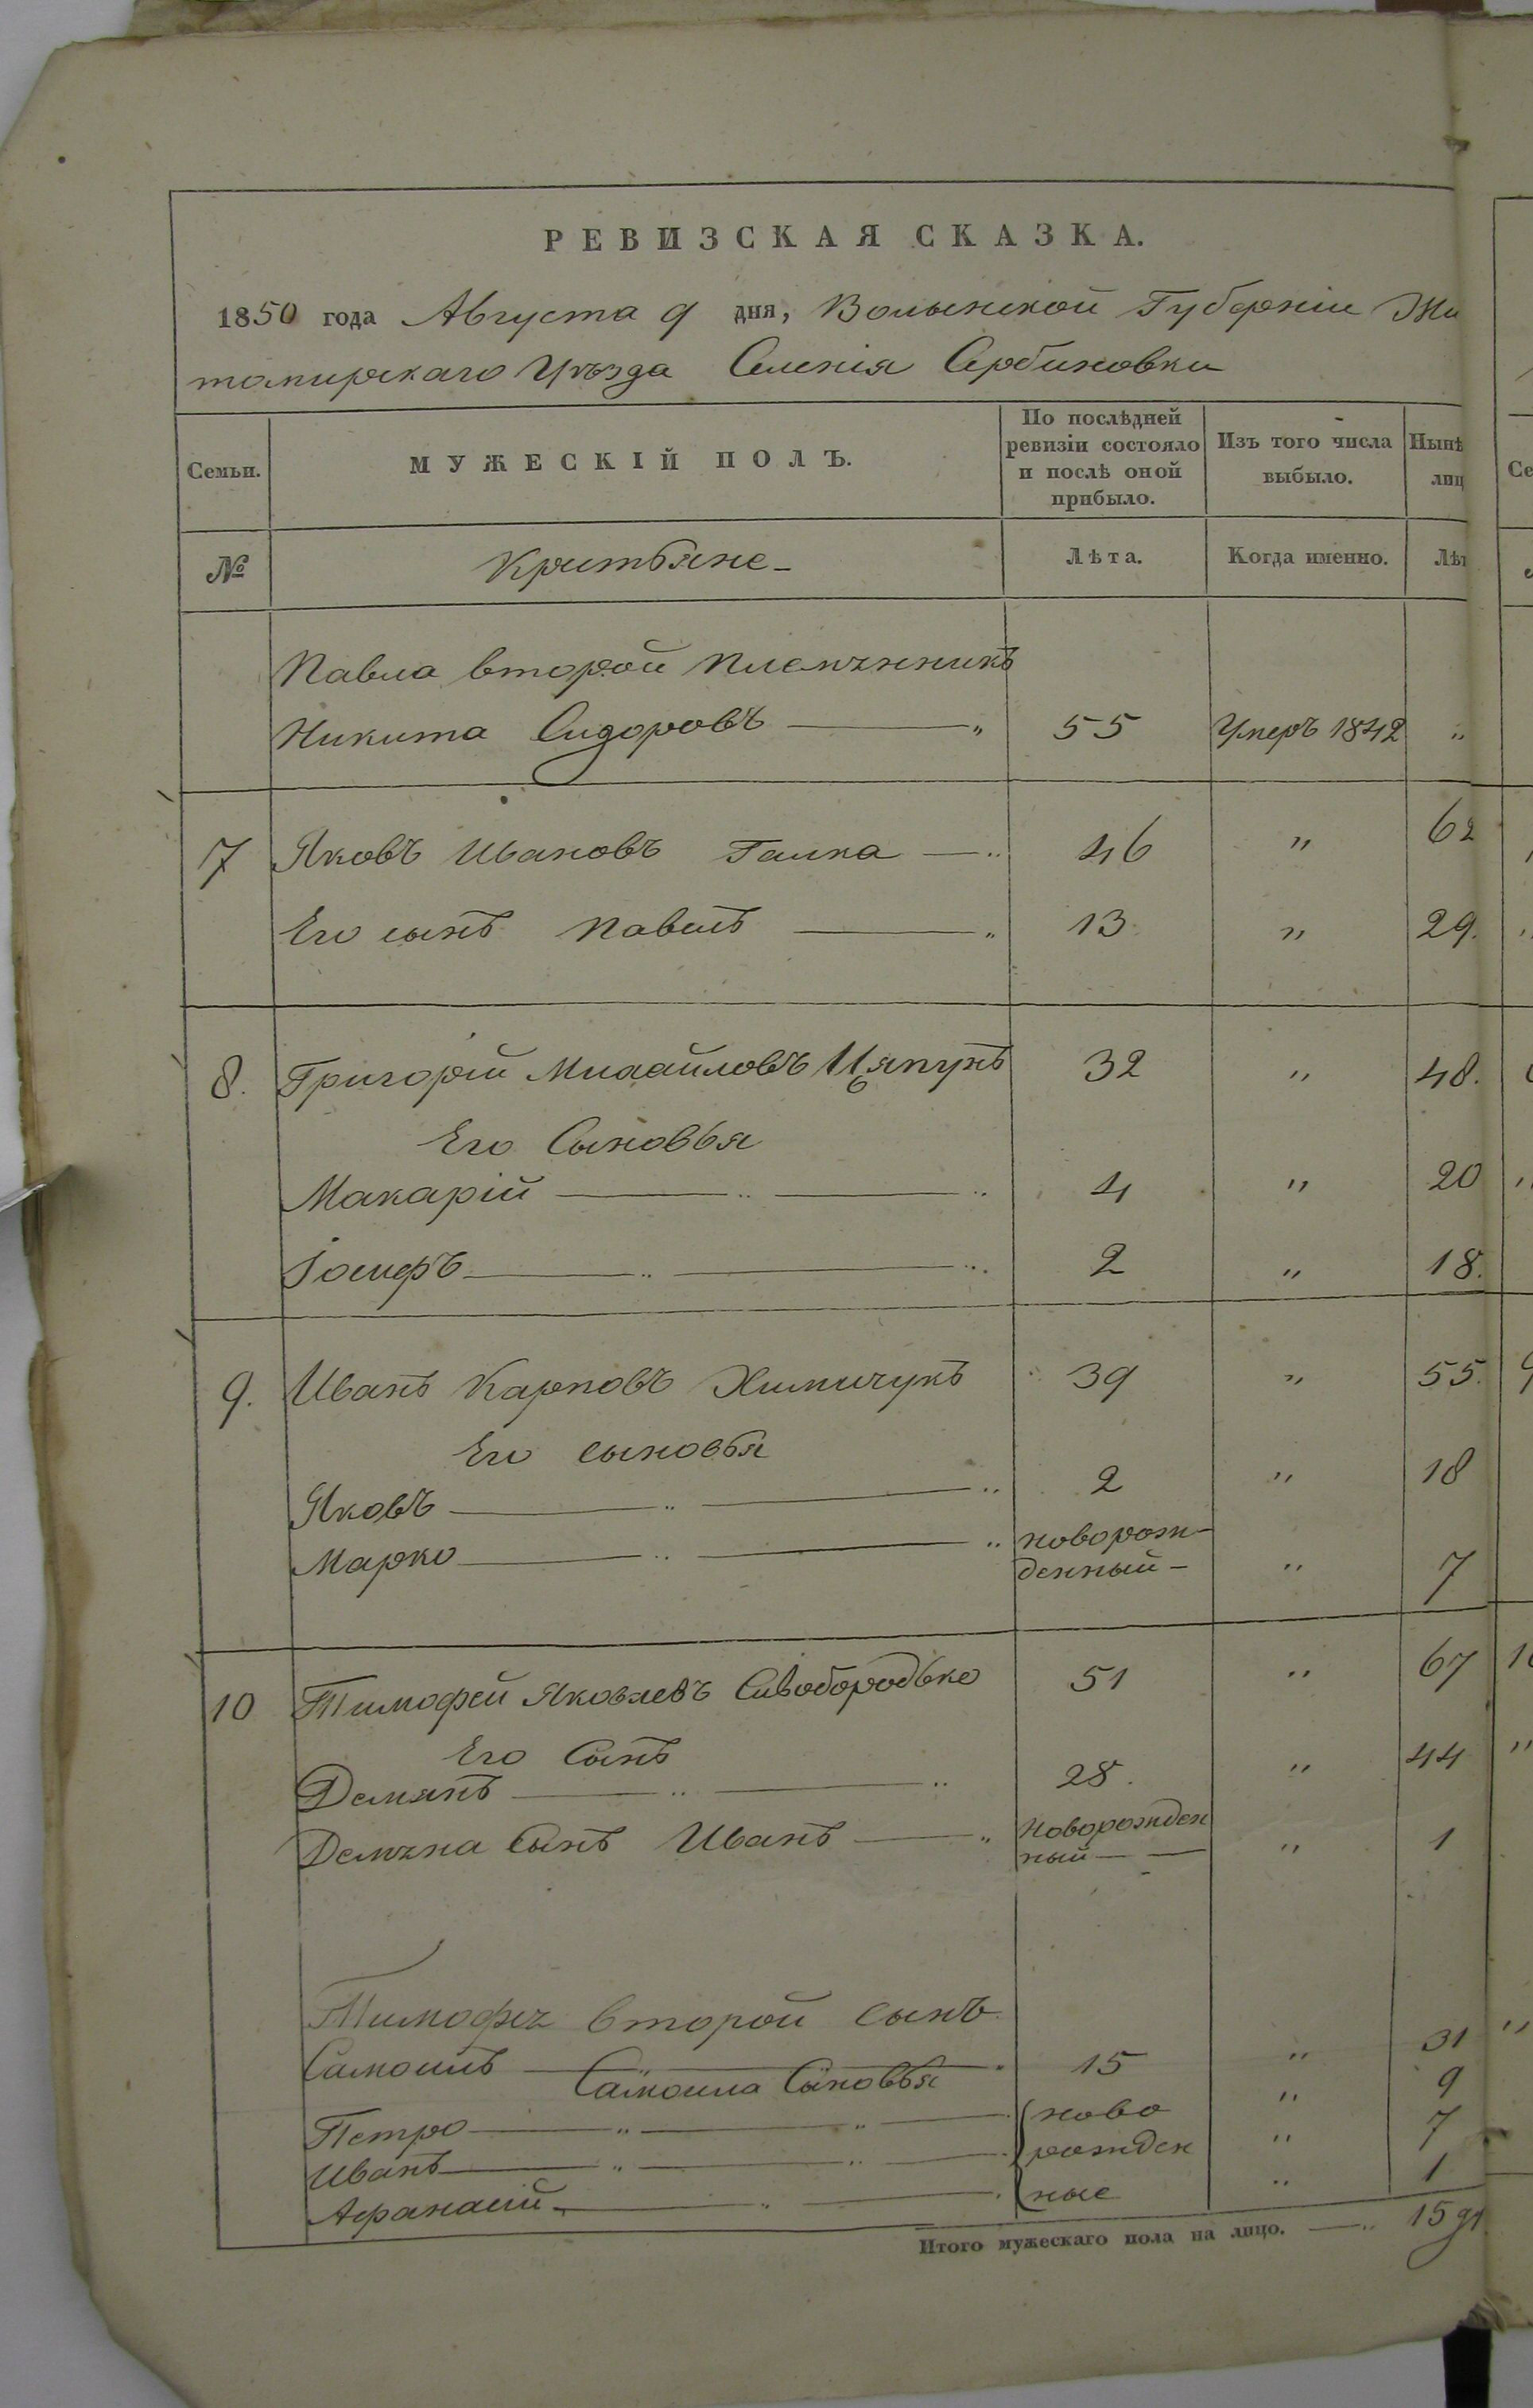 РЕВИЗСКАЯ СКАЗКА.
1850 года Августа 9 дня, Волынской Губерніи Жи
томирскаго Уѣзда Селенія Сербиновки
Семьи. МУЖЕСКІЙ ПОЛЪ. По послѣдней ревизіи состояло и послѣ оной прибыло. Изъ того числа выбыло. Нынѣ лиц
№ Крестьяне Лѣта. Когда именно. Лѣт
Павла второй племянникъ
Никита Сидоровъ — „ 55 Умеръ 1842 „
7 Яковъ Ивановъ Галка — „ 46 „ 62
Его сынъ Павелъ — „ 13 „ 29.
8. Григорій Михайловъ Цяпунъ 32 „ 48.
Его Сыновья
Макарій — „ — „ 4 „ 20
Іосифъ — „ — „ 2 „ 18.
9. Иванъ Карповъ Химичукъ 39 „ 55.
Его сыновья
Яковъ — „ — „ 2 „ 18
Марко — „ — „ новорож-
денный — „ 7
10 Тимофей Яковлевъ Сивобородько 51 „ 67
Его Сынъ
Демянъ — „ — „ 28. „ 44
Демяна Сынъ Иванъ — „ новорожден
ный — „ 1
Тимофея второй сынъ
Самоилъ — „ 15 „ 31
Самоила Сыновья
Петро — „ — „ — ново „ 9
Иванъ — „ — „ — рожден „ 7
Афанасій — „ — ные „ 1
Итого мужескаго пола на лицо. — „ 15